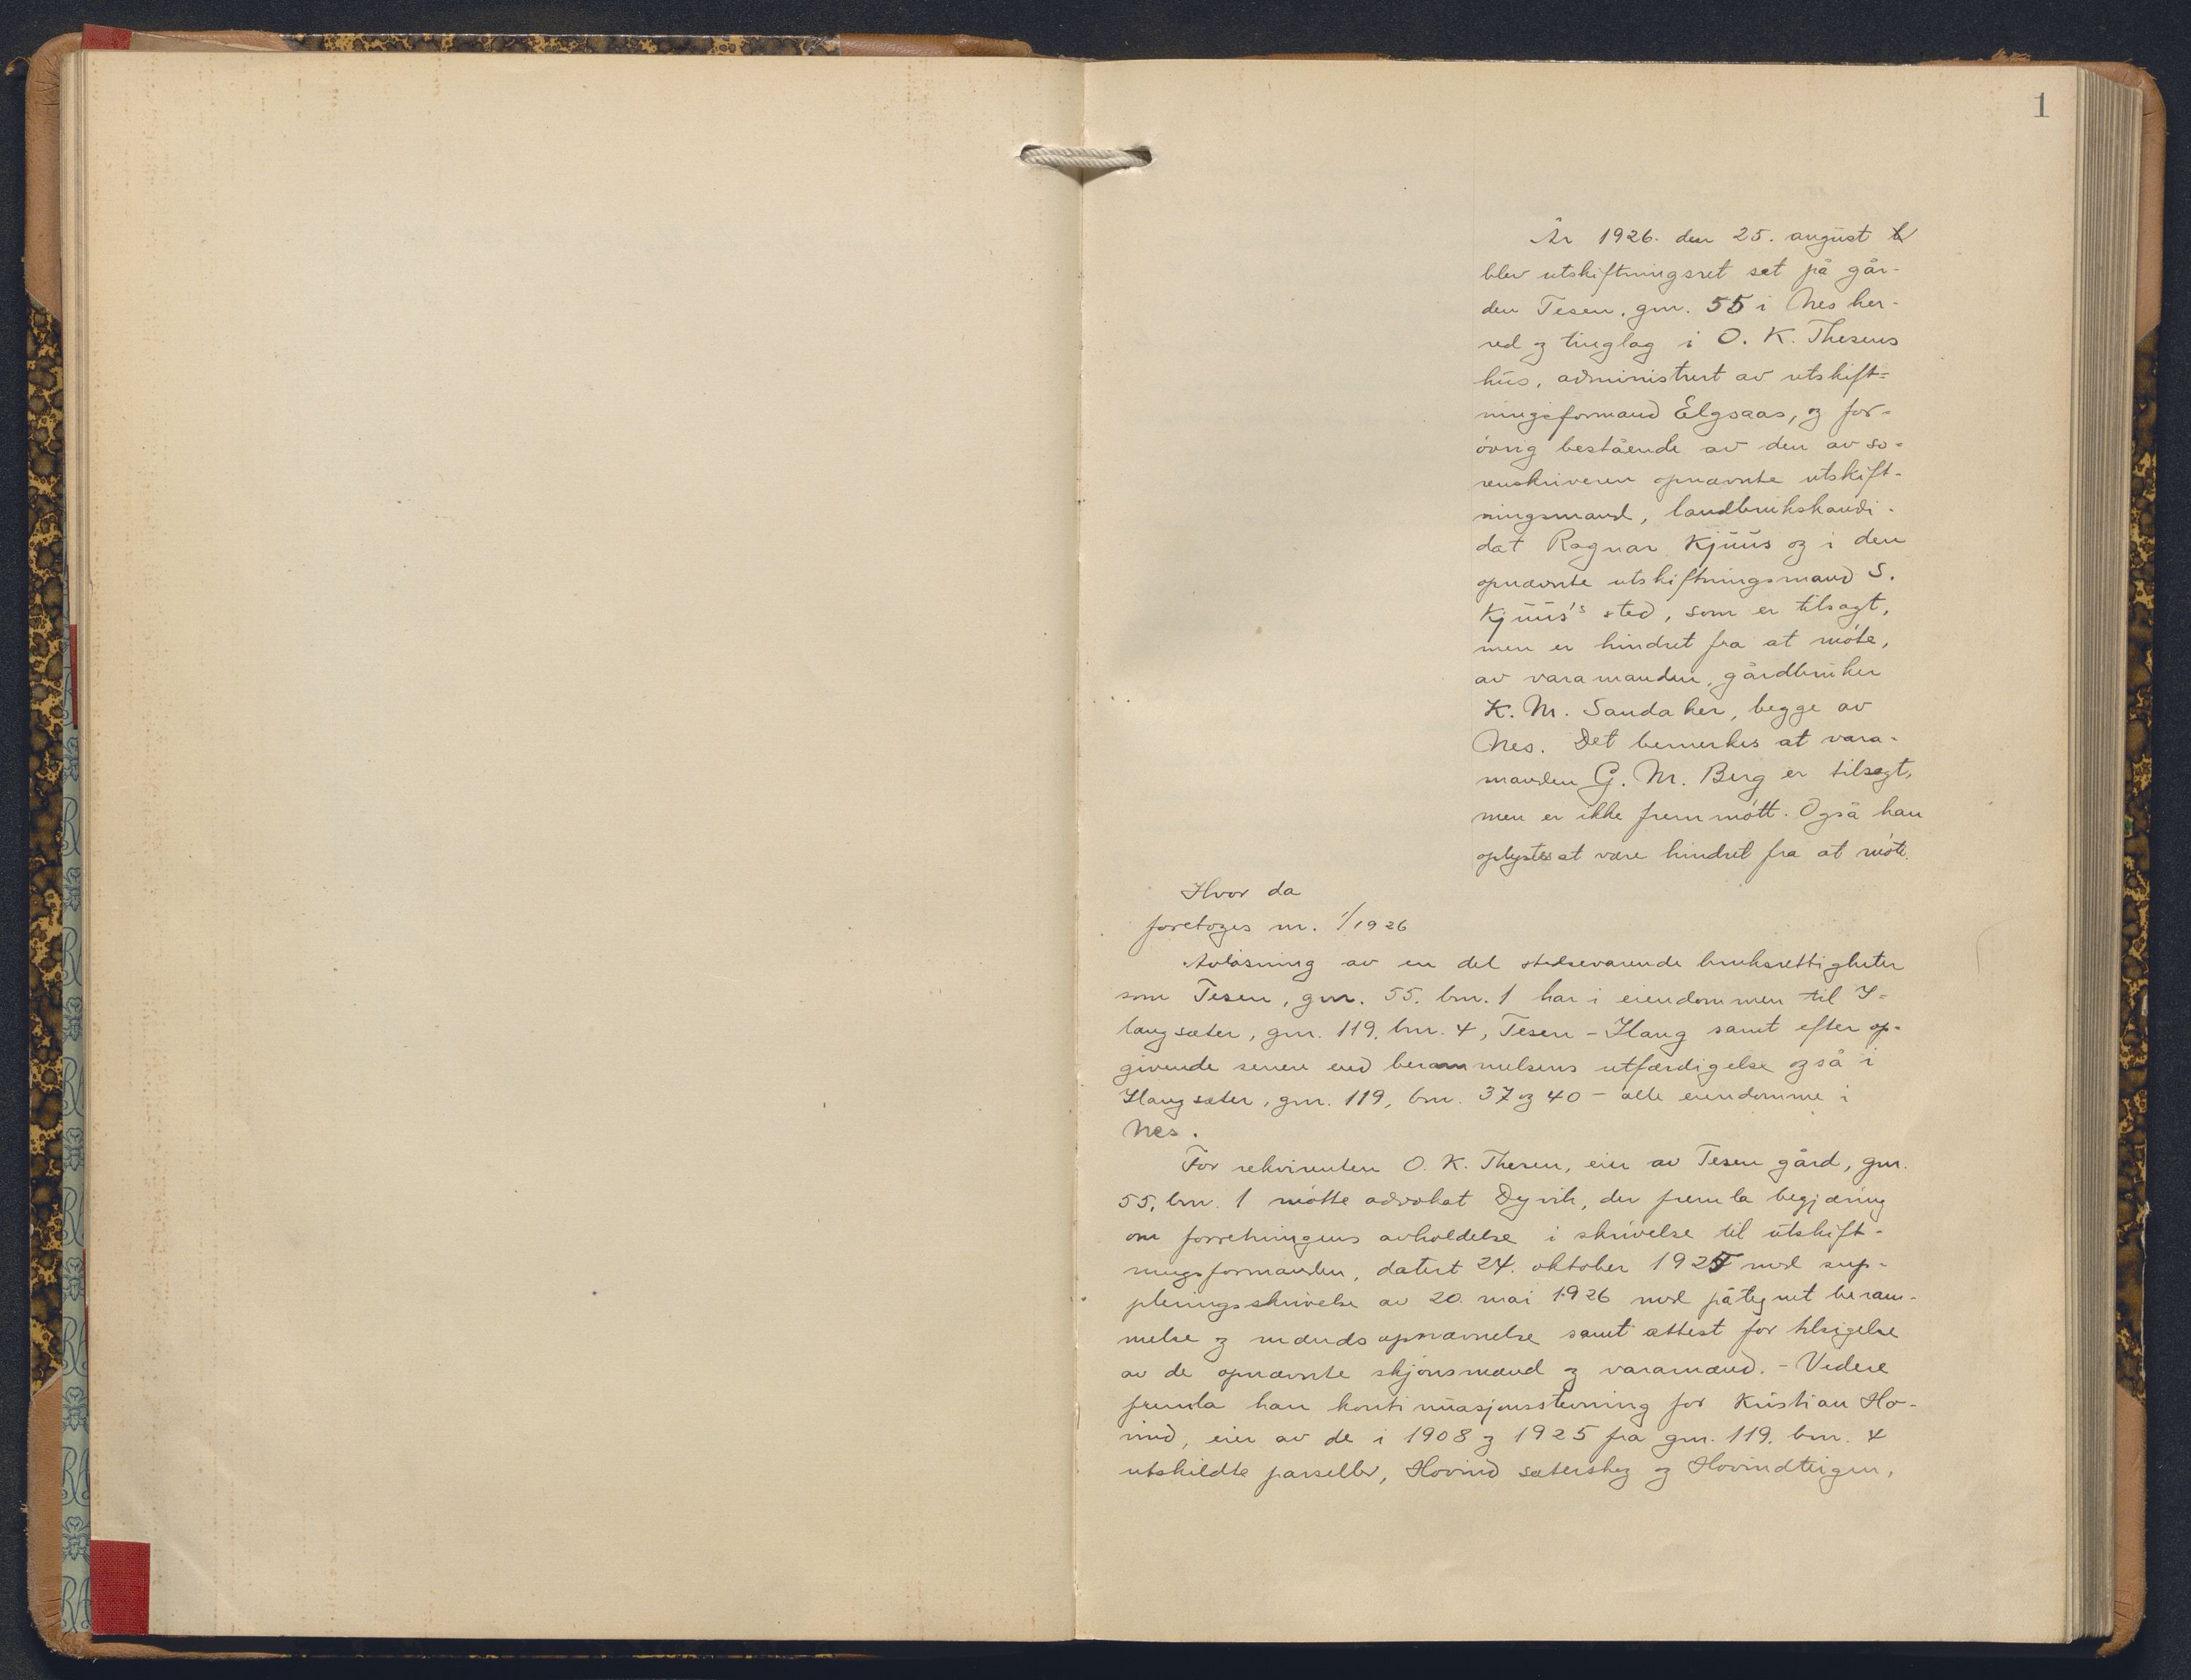 1
År 1926. den 25. august
blev utskiftningsret sat på går-
den Tesen, gnr. 55 i Nes her-
red og tinglag i O. K. Thesens
hus, administrert av utskift=
ningsformand Elgsaas, og for-
øvrig bestående av den av so-
renskriveren opnævnte utskift-
ningsmand, landbrukskandi-
dat Ragnar Kjuus og i den
opnævnte utskiftningsmand S.
Kjuus's sted, som er tilsagt,
men er hindret fra at møte,
av varamanden, gårdbruker
K. M. Sandaker, begge av
Nes. Det bemerkes at vara-
manden G. M. Berg er tilsagt,
men er ikke fremmøtt. Også han
oplystes at være hindret fra at møte.
Hvor da
foretoges nr. 1/1926
Avløsning av en del stedsevarende bruksrettigheter
som Tesen, gnr. 55. bnr. 1 har i eiendommen til H-
laugsæter, gnr. 119. bnr. 4, Tesen - Haug samt efter op-
givende senere end berammelsens utfærdigelse også i
Haugsæter, gnr. 119, bnr. 37 og 40 - alle eiendomme i
Nes.
For rekvirenten O. K. Thesen, eier av Tesen gård, gnr.
55, bnr. 1 møtte advokat Dyvik, der fremla begjæring
om forretningens avholdelse i skrivelse til utskift-
ningsformanden, datert 24. oktober 1925 med sup-
pleringsskrivelse av 20. mai 1926 med påtegnet beram-
melse og mændsopnævnelse samt attest for tilsigelse
av de opnævnte skjønsmænd og varamænd. - Videre
fremla han kontinuasjonsstevning for Kristian Ho-
vind, eier av de i 1908 og 1925 fra gnr. 119. bnr. 4
utskildte parseller, Hovind sæterskog og Hovindteigen,